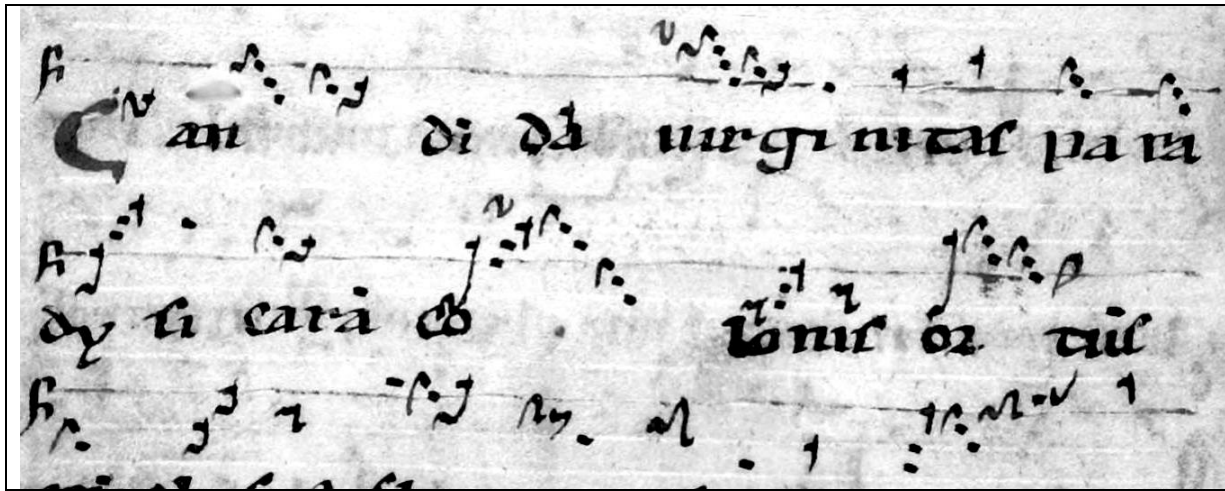 Can di da uirgi nitas pa ra
dy si cara co lonis or tus